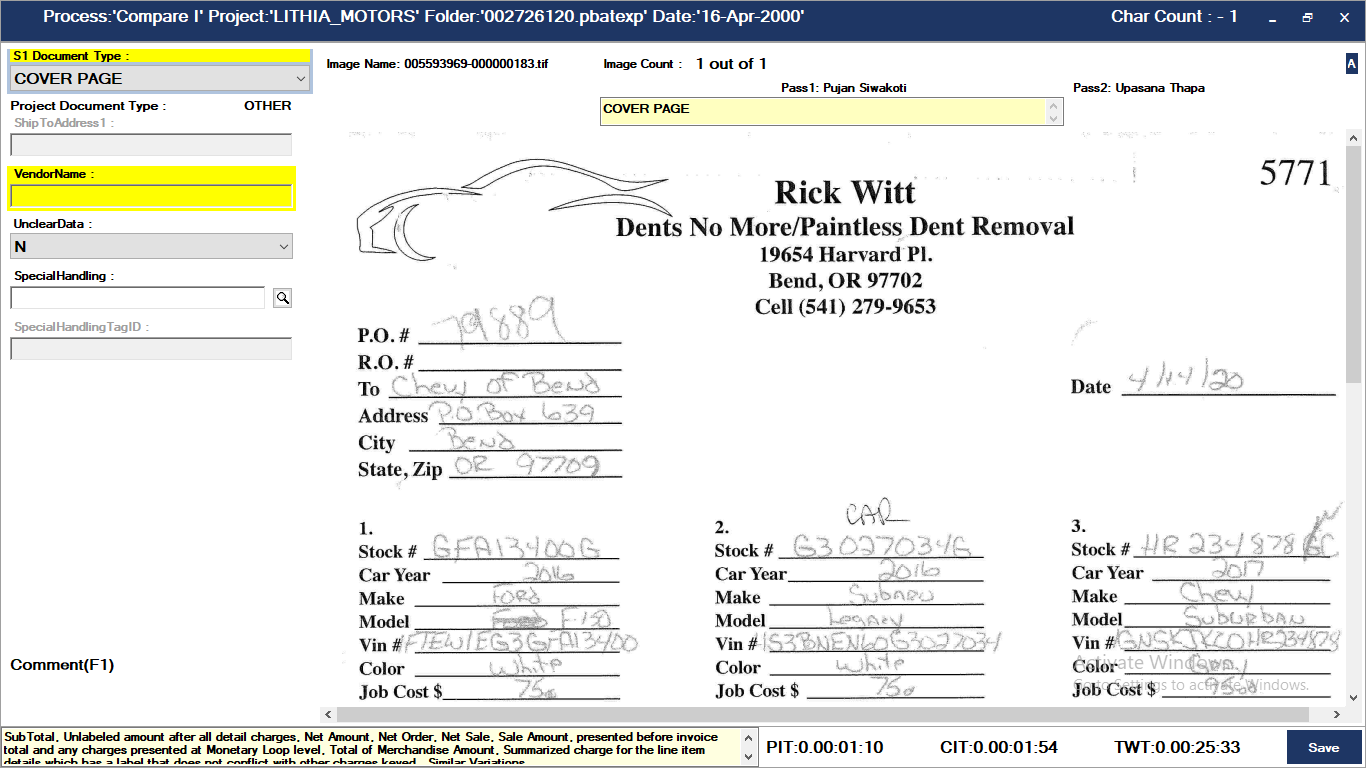 Process:'Compare I' Project:'LITHIA_MOTORS' Folder:'002726120.pbatexp' Date:'16-Apr-2000'
Char Count : - 1
S1 Document Type :
COVER PAGE
Project Document Type : OTHER
ShipToAddress1 :
VendorName :
UnclearData :
N
SpecialHandling :
SpecialHandlingTagID :
Comment(F1)
Image Name: 005593969-000000183.tif
Image Count : 1 out of 1
A
Pass1: Pujan Siwakoti
Pass2: Upasana Thapa
COVER PAGE
5771
Rick Witt
Dents No More/Paintless Dent Removal
19654 Harvard Pl.
Bend, OR 97702
Cell (541) 279-9653
P.O. # 79889
R.O. #
To Chevy of Bend
Date 4/14/20
Address P.O Box 639
City Bend
State, Zip OR 97709
1.
Stock # GFA13400G
Car Year 2016
Make Ford
Model F150
Vin # FTEW1EG3GFA13400
Color White
Job Cost $ 75
CAR
2.
Stock # G3027034G
Car Year 2016
Make Subaru
Model Legacy
Vin # 1S3BNEN60G3027034
Color White
Job Cost $ 75
3.
Stock # HR234878
Car Year 2017
Make Chevy
Model Suburban
Vin # GNSKJKC0HR234878
Color Grey
Job Cost $
Activate Windows
Go to Settings to activate Windows.
SubTotal, Unlabeled amount after all detail charges, Net Amount, Net Order, Net Sale, Sale Amount, presented before invoice
total and any charges presented at Monetary Loop level, Total of Merchandise Amount, Summarized charge for the line item
details which has a label that does not conflict with other charges keyed, Similar Variations
PIT:0.00:01:10
CIT:0.00:01:54
TWT:0.00:25:33
Save